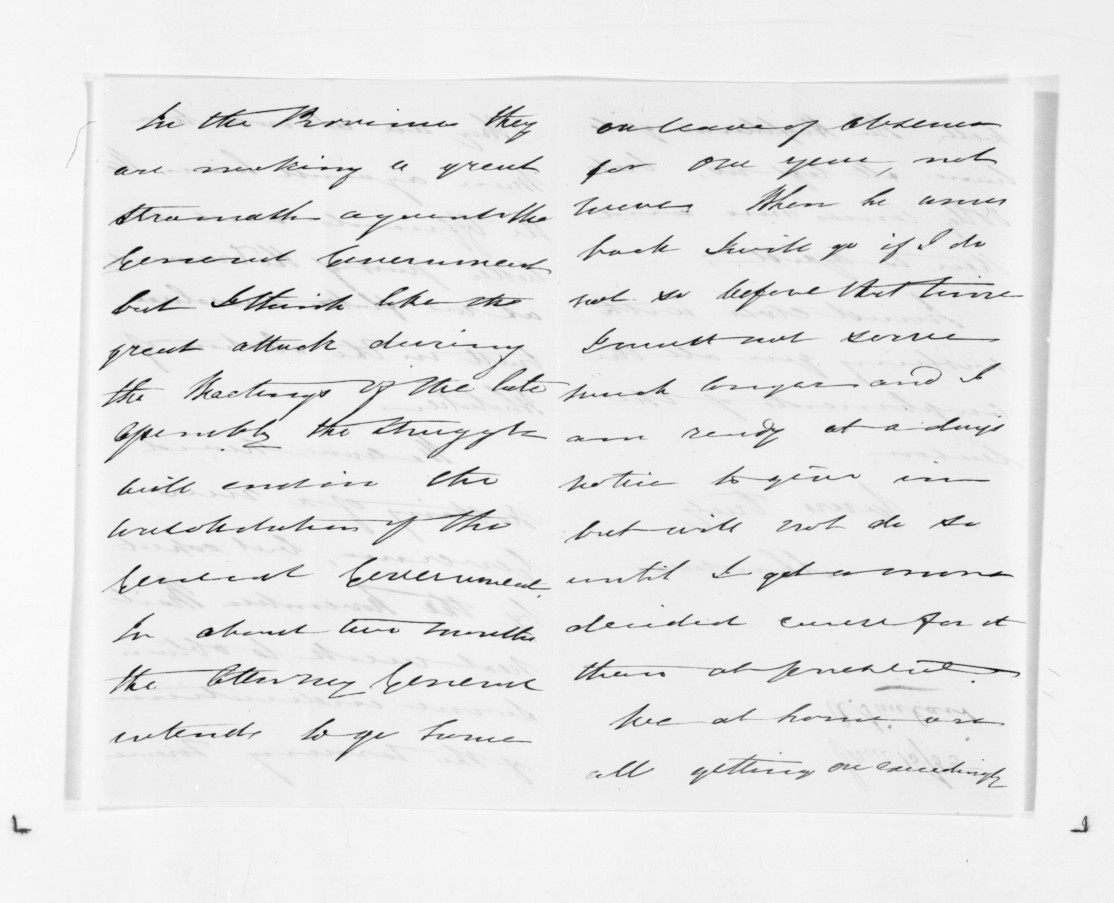 In the Provinces they
are making a great
against the
General Government
but I think like the
great attack during
the Meetings of the late
Assembly the struggle
will end in the
consolidation of the
General Government.
In about two months
the Attorney General
intends to go home
on leave of absence
for one year, not
more. When he comes
back I will go if I do
not so before that time
I must not serve
much longer and I
am ready at a days
notice to give in
but will not do so
until I get a more
decided cause for it
than at present.
We at home are
all getting on exceedingly